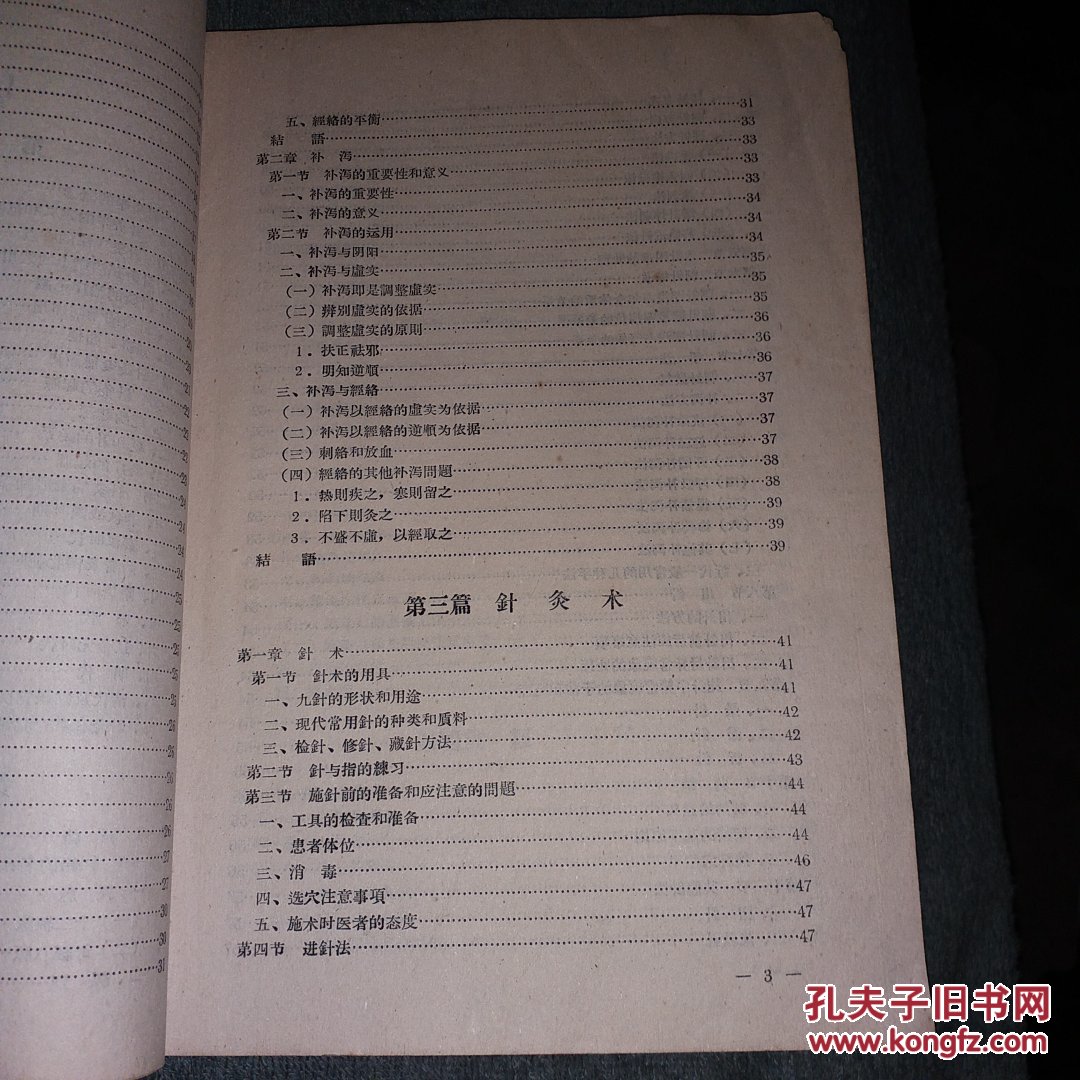 26
26
27
27
30
30
31
五、經絡的平衡……31
結　語……33
第二章 补　泻……33
第一节　补泻的重要性和意义……33
一、补泻的重要性……33
二、补泻的意义……34
第二节　补泻的运用……34
一、补泻与阴阳……34
二、补泻与虛实……35
(一)补泻即是調整虛实……35
(二)辨別虛实的依据……35
(三)調整虛实的原則……36
1．扶正祛邪……36
2．明知逆順……36
三、补泻与經絡……37
(一)补泻以經絡的虛实为依据……37
(二)补泻以經絡的逆順为依据……37
(三)刺絡和放血……37
(四)經絡的其他补泻問題……38
1．热則疾之，寒則留之……38
2．陷下則灸之……39
3．不盛不虛，以經取之……39
結　語……39
第三篇　針　灸　术
第一章 針　术……41
第一节　針术的用具……41
一、九針的形状和用途……41
二、现代常用針的种类和质料……42
三、检針、修針、藏針方法……42
第二节　針与指的練习……43
第三节　施針前的准备和应注意的問題……44
一、工具的检查和准备……44
二、患者体位……44
三、消　毒……46
四、选穴注意事項……47
五、施术时医者的态度……47
第四节　进針法……47
— 3 —
孔夫子旧书网
www.kongfz.com